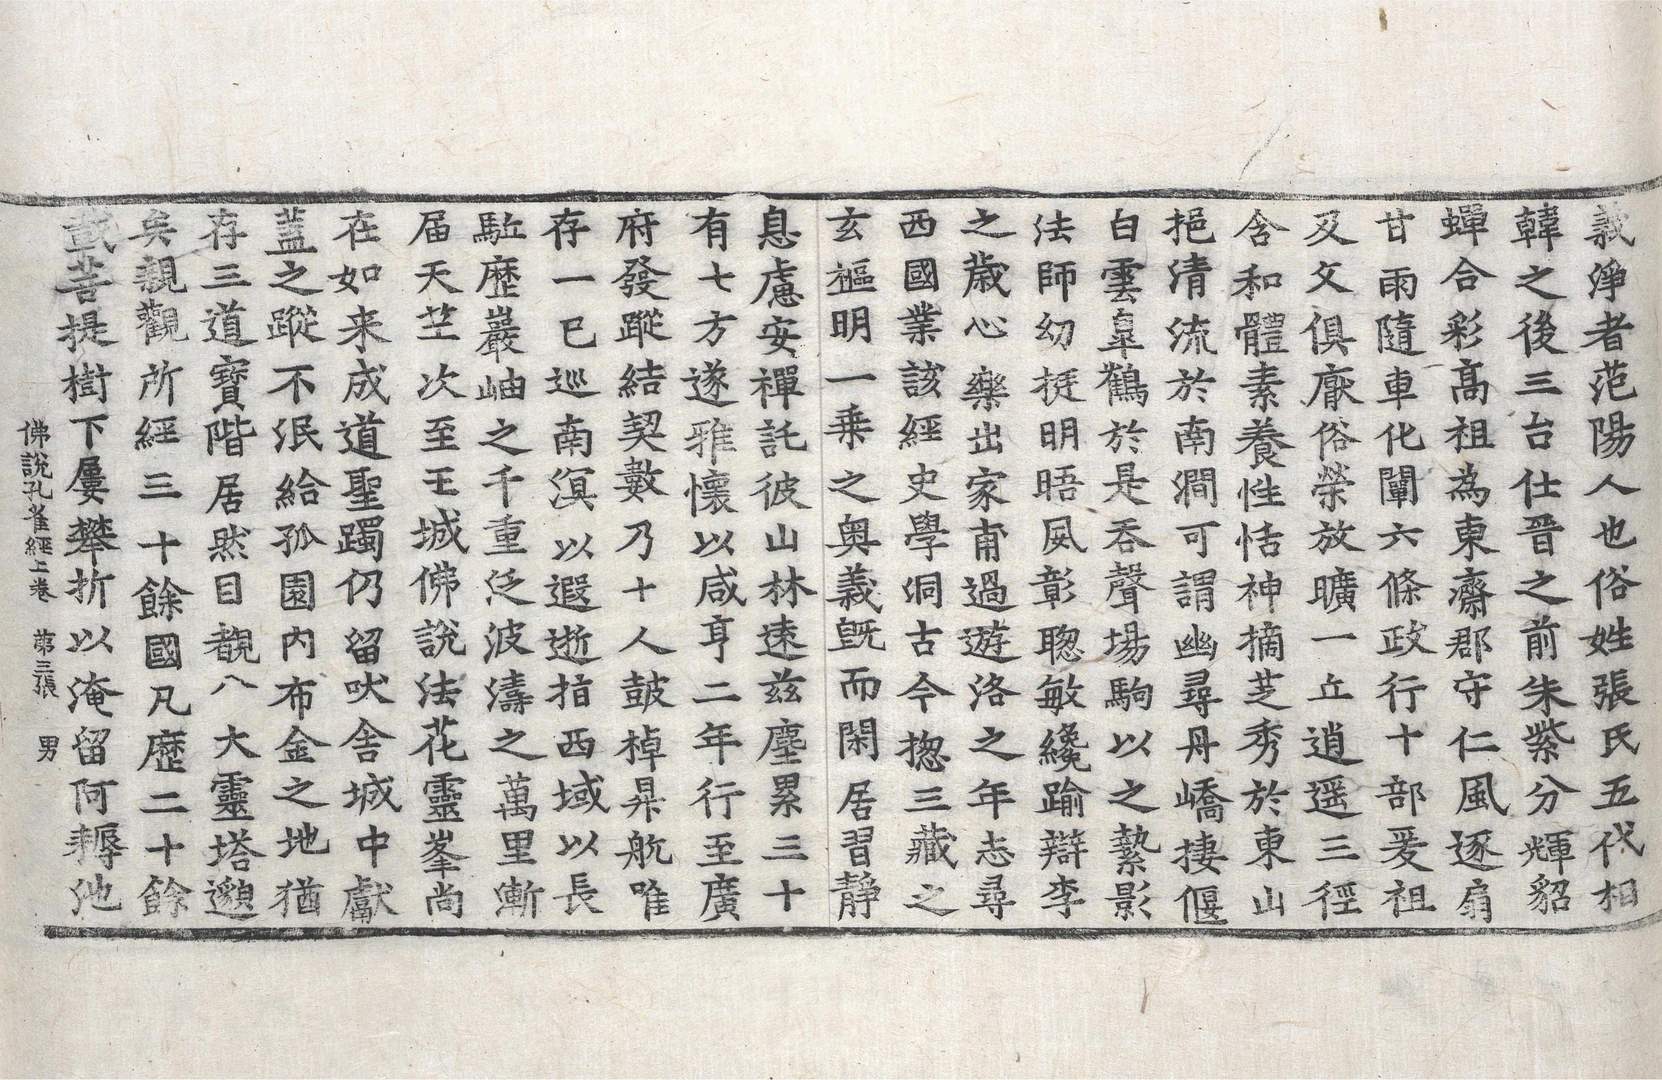 義淨者范陽人也俗姓張氏五代相
韓之後三台仕晉之前朱紫分輝貂
蟬合彩髙祖為東齋郡守仁風逐扇
甘雨隨車化闡六條政行十部爰祖
及父俱厭俗榮放曠一丘逍遥三徑
含和體素養性恬神摘芝秀於東山
挹清流於南澗可謂幽尋丹嶠捿偃
白雲臯鶴於是吞聲場駒以之縶影
法師幼挺明晤夙彰聦敏纔踰辯李
之歲心樂出家甫過遊洛之年志尋
西國業該經史學洞古今揔三藏之
玄樞明一乗之奥義旣而閑居習靜
息慮安禪託彼山林逺兹塵累三十
有七方遂雅懷以咸亨二年行至廣
府發蹤結契數乃十人鼓棹昇航唯
存一己巡南溟以遐逝指西域以長
駈歷巖岫之千重泛波濤之萬里漸
届天竺次至王城佛說法花靈峯尚
在如来成道聖躅仍留吠舍城中獻
蓋之蹤不泯給孤園内布金之地猶
存三道寶階居然目覩八大靈塔邈
矣親觀所經三十餘國凡歷二十餘
載菩提樹下屢攀折以淹留阿耨池
佛說孔雀經上卷　苐三張　男